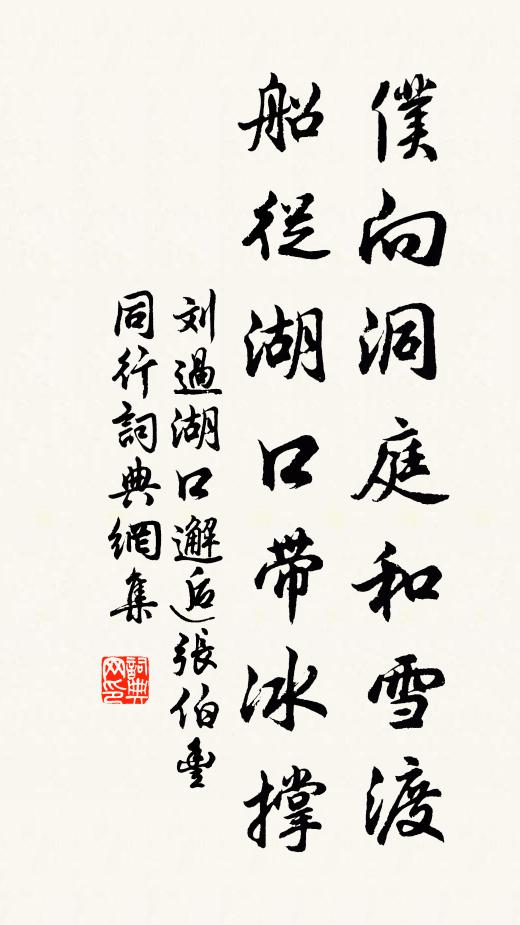 僕向洞庭和雪渡
船從湖口帶冰撑
刘過湖口邂逅張伯豐
同行詞典網集
詞典网印